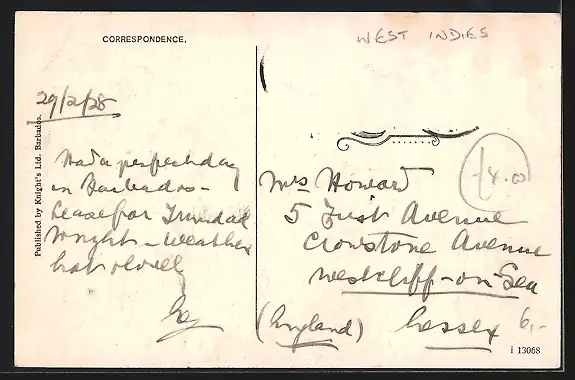 CORRESPONDENCE.
WEST INDIES
Published by Knight's Ltd. Barbados.
29/2/28
Had a perfect day
in Barbados -
Lease for Trinidad
tonight - weather
hot
Mrs Howard
£4.00
5 First Avenue
Crowstone Avenue
Westcliff-on-Sea
(England) Essex
6,-
i 13068